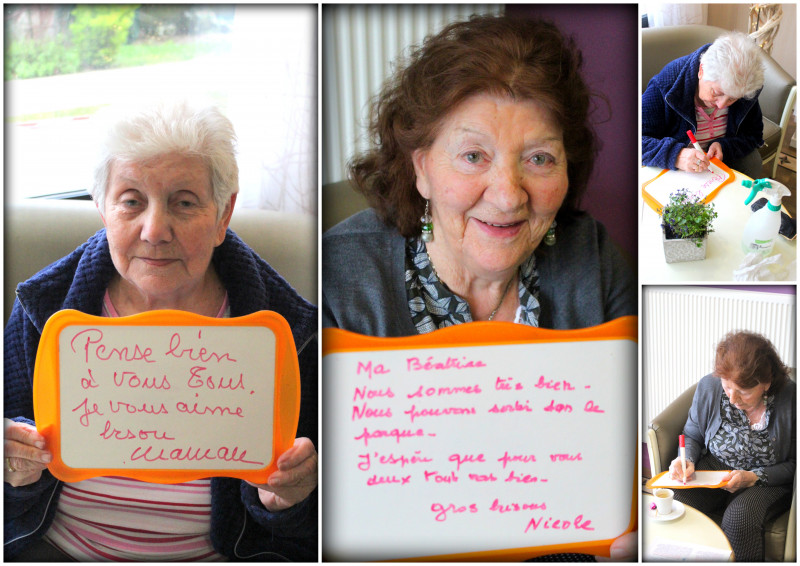 Pense bien
à vous tous,
je vous aime
bisou
maman
Ma Béatrice
Nous sommes très bien -
Nous pouvons sortir dans le
parque -
J'espère que pour vous
deux tout vas bien -
gros bisous
Nicole